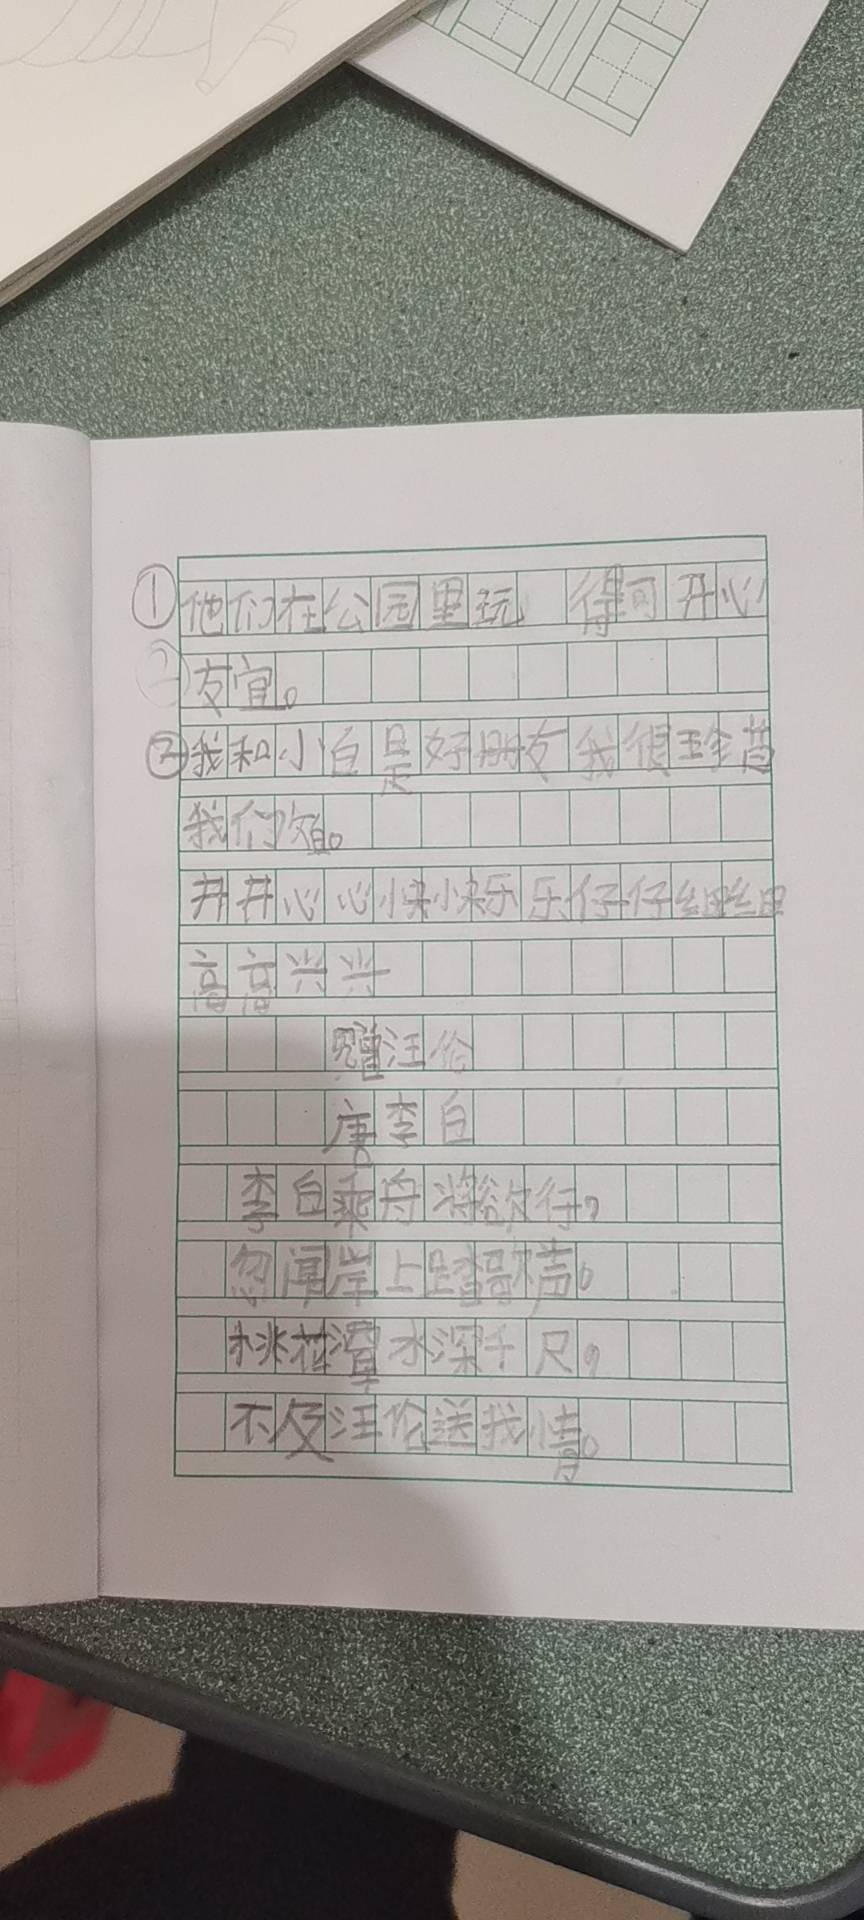 ①他们在公园里玩 得可开心
友宜。
②我和小白是好朋友我很珍昔
我们友宜。
开开心心快快乐乐仔仔细细
高高兴兴
赠汪伦
唐李白
李白乘舟将欲行,
忽闻岸上踏歌声。
桃花潭水深千尺,
不及汪伦送我情。